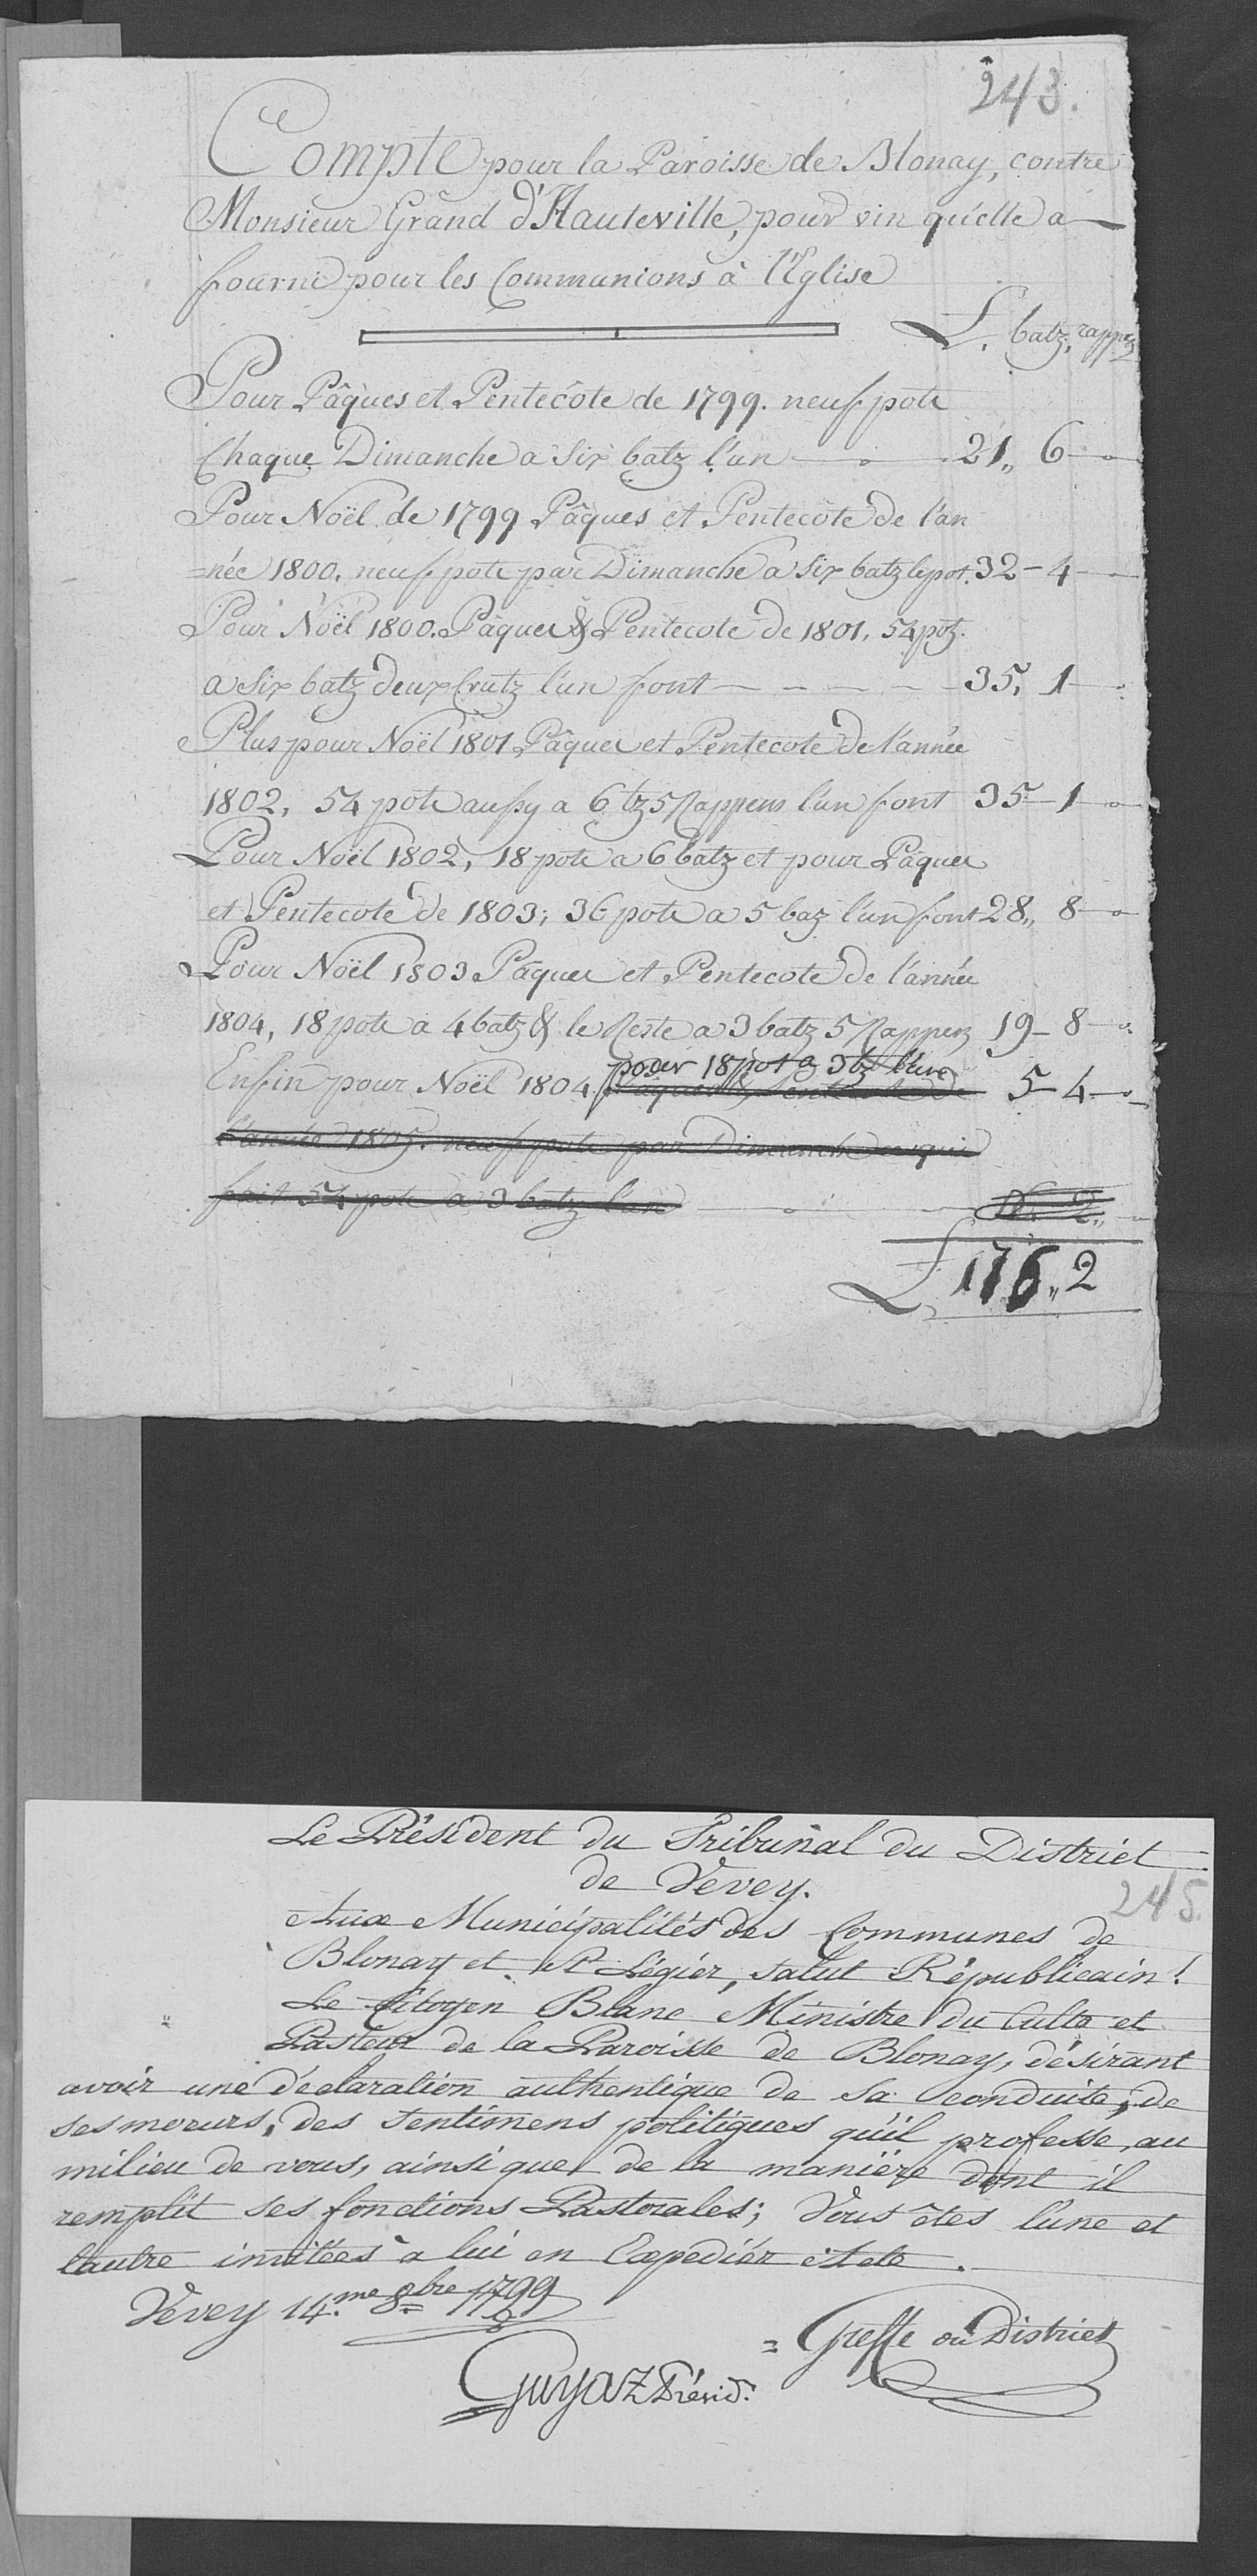 243.
Compte pour la Paroisse de Blonay, contre
Monsieur Grand d'Hauteville, pour vin qu'elle a
fourni pour les Communions à l'Eglise
L. batz, rappez
Pour Pâques et Pentecôte de 1799. neuf pots
Chaque Dimanche a six batz l'un 21,, 6
Pour Noël de 1799 Pâques et Pentecôte de l'an
=née 1800. neuf pots par Dimanche a six batz le pot. 32 - 4
Pour Noël 1800. Pâques & Pentecote de 1801, 54 potz.
a six batz deux Crutz l'un font 35, 1
Plus pour Noël 1801 Pâques et Pentecote de l'année
1802, 54 pots aussy a 6 bz 5 Rappens l'un font 35 - 1
Pour Noël 1802, 18 pots a 6 batz et pour Pâques
et Pentecote de 1803; 36 pots a 5 baz l'un font 28,, 8
Pour Noël 1803 Pâques et Pentecote de l'année
1804, 18 pots a 4 batz & le Reste a 3 batz 5 Rappenz 19 - 8
pour 18 pot a 3 bz l'un
Enfin pour Noël 1804. Pâques & Pentecote de 5 - 4
l'année 1805. neuf pots par Dimanche ce qui
fait 54 pots a 3 batz l'un
L 176,, 2
Le Président du Tribunal du District
de Vevey.
245.
Aux Municipalités des Communes de
Blonay et St Légiér, salut Républicain!
Le Citoyen Blanc Ministre du Culte et
Pasteur de la Paroisse de Blonay, désirant
avoir une déclaration authentique de sa conduite, de
ses moeurs, des sentimens politiques qu'il professe, au
milieu de vous, ainsi que de la maniére dont il
remplit ses fonctions Pastorales; Vous êtes l'une et
l'autre invitées à lui en Expediér Acte.
Vevey 14.me 8bre 1799
= Greffe du District
Guyaz Présid.t